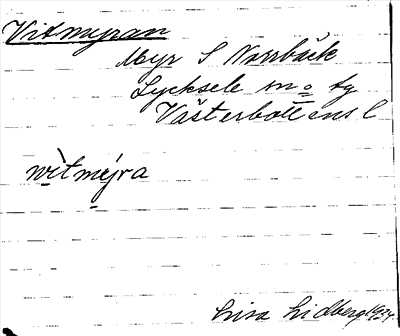 Vitmyran
Myr S Norrbäck
Lycksele sn o tg
Västerbottens l
witmýra
Lisa Lidberg 1934